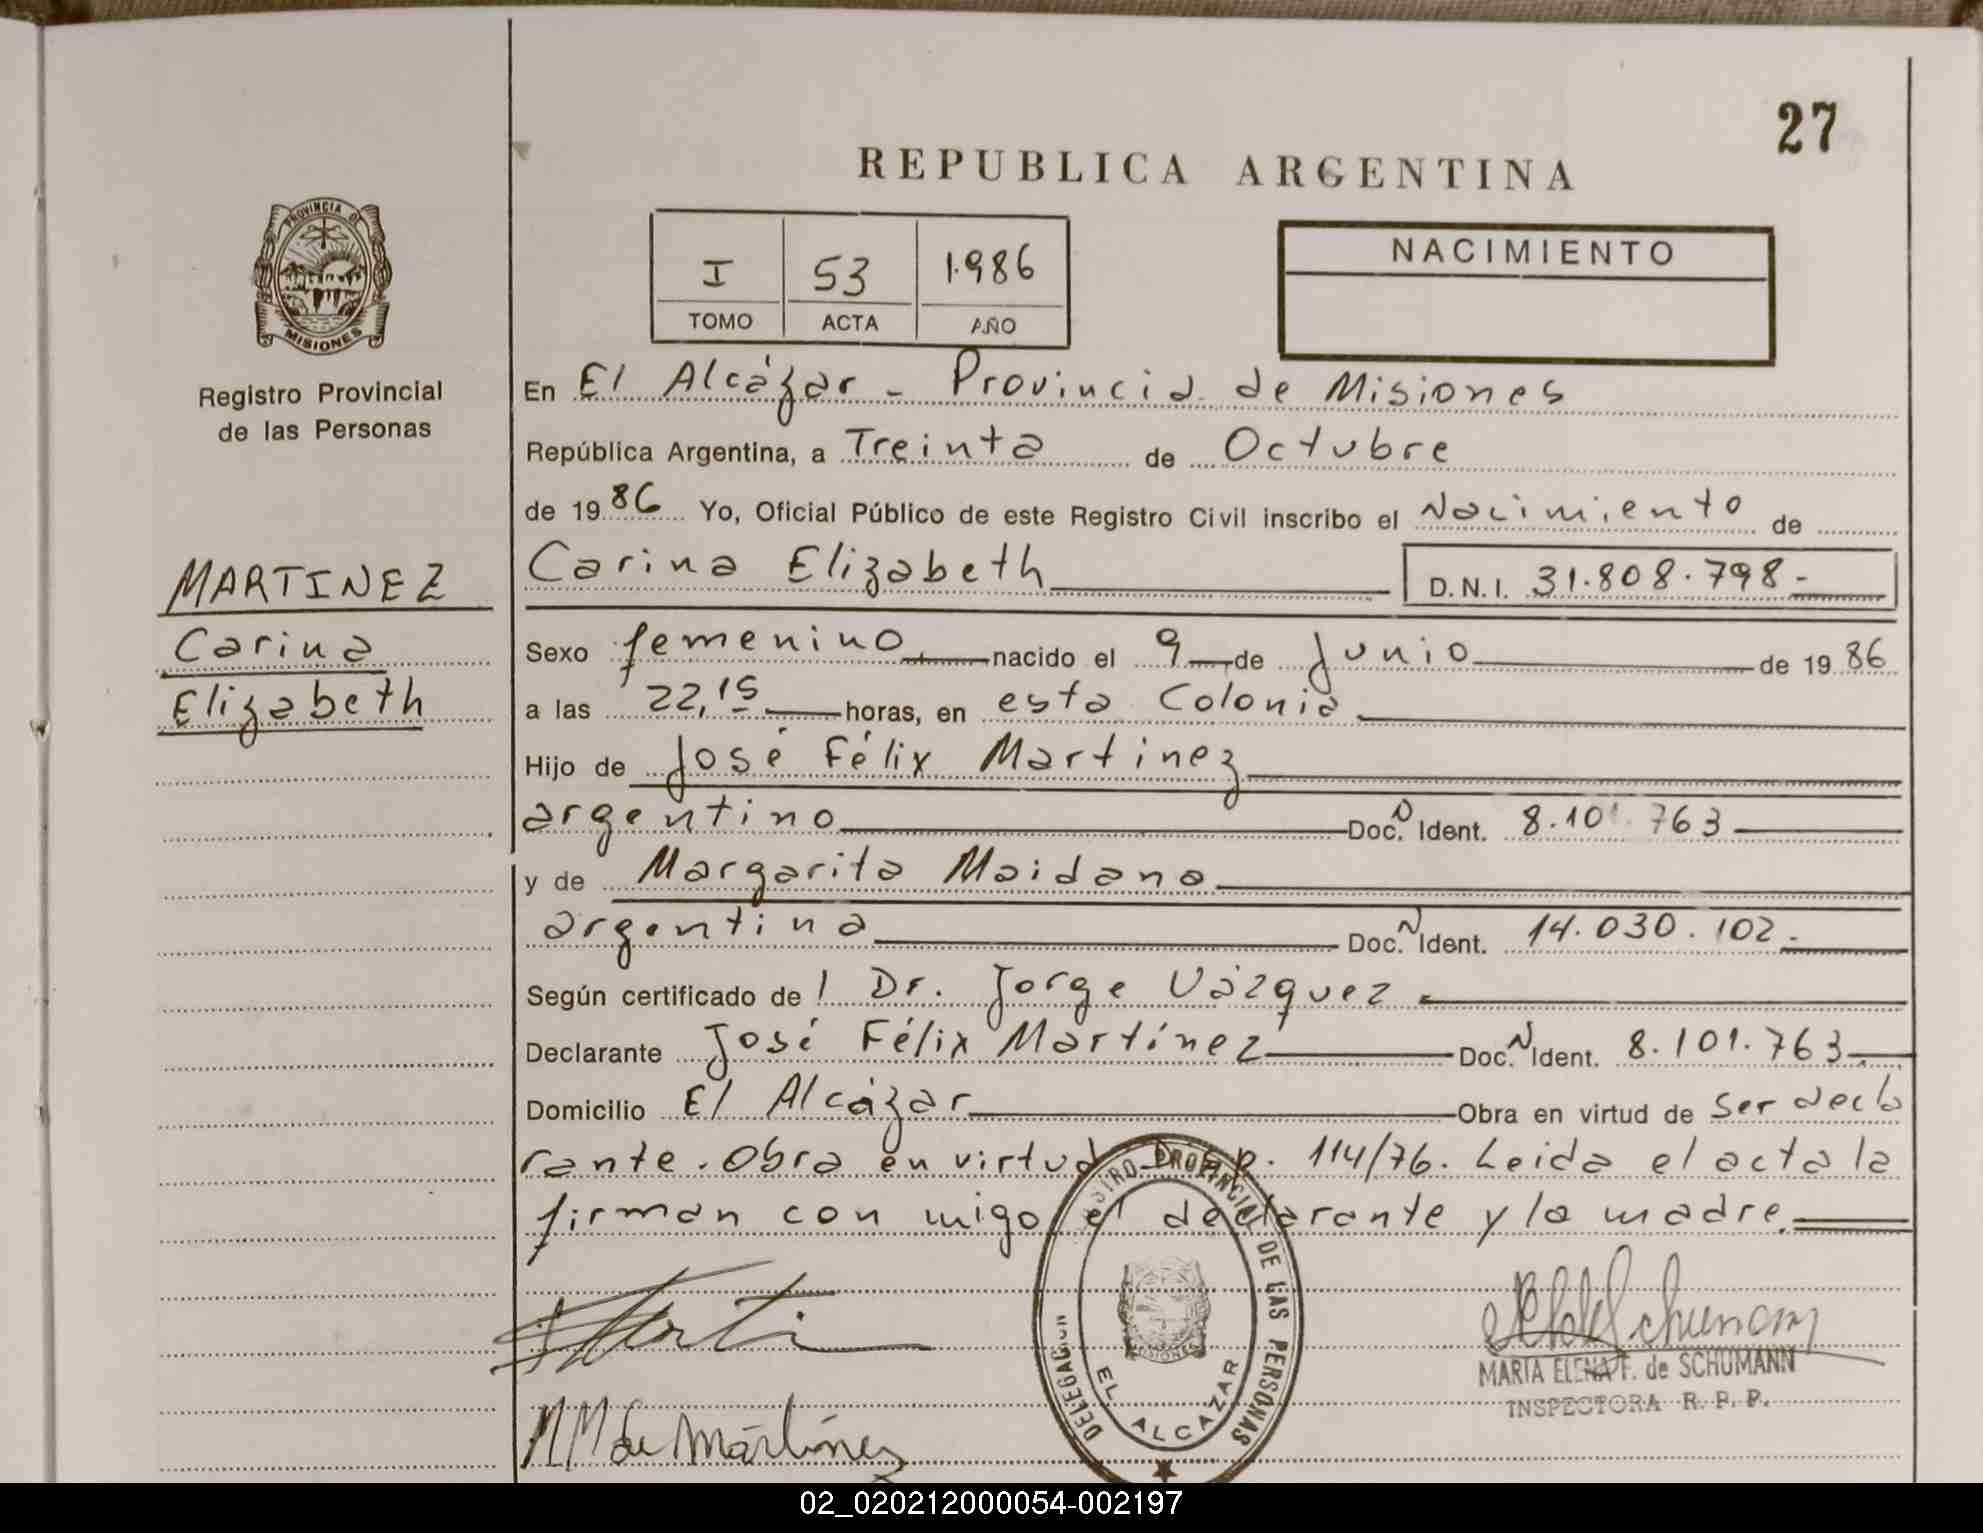 27
REPUBLICA ARGENTINA
PROVINCIA DE
MISIONES
Registro Provincial
de las Personas
I 53 1.986
TOMO ACTA AÑO
NACIMIENTO
En El Alcázar - Provincia de Misiones
República Argentina, a Treinta de Octubre
de 1986 Yo, Oficial Público de este Registro Civil inscribo el Nacimiento de
Carina Elizabeth D.N.I. 31.808.798.-
MARTINEZ
Carina
Elizabeth
Sexo femenino nacido el 9 de Junio de 1986
a las 22,15 horas, en esta Colonia
Hijo de José Félix Martinez
argentino Doc. Ident. 8.101.763
y de Margarita Maidana
argentina Doc. Ident. 14.030.102.-
Según certificado del Dr. Jorge Vázquez.
Declarante José Félix Martínez Doc. Ident. 8.101.763
Domicilio El Alcázar Obra en virtud de ser decla
rante. Obra en virtud Disp. 114/76. Leida el acta la
firman con migo el declarante y la madre.
REGISTRO PROVINCIAL DE LAS PERSONAS
DELEGACION
EL ALCAZAR
MISIONES
MARIA ELENA F. de SCHUMANN
INSPECTORA R. P. P.
M M de Martínez
02_020212000054-002197